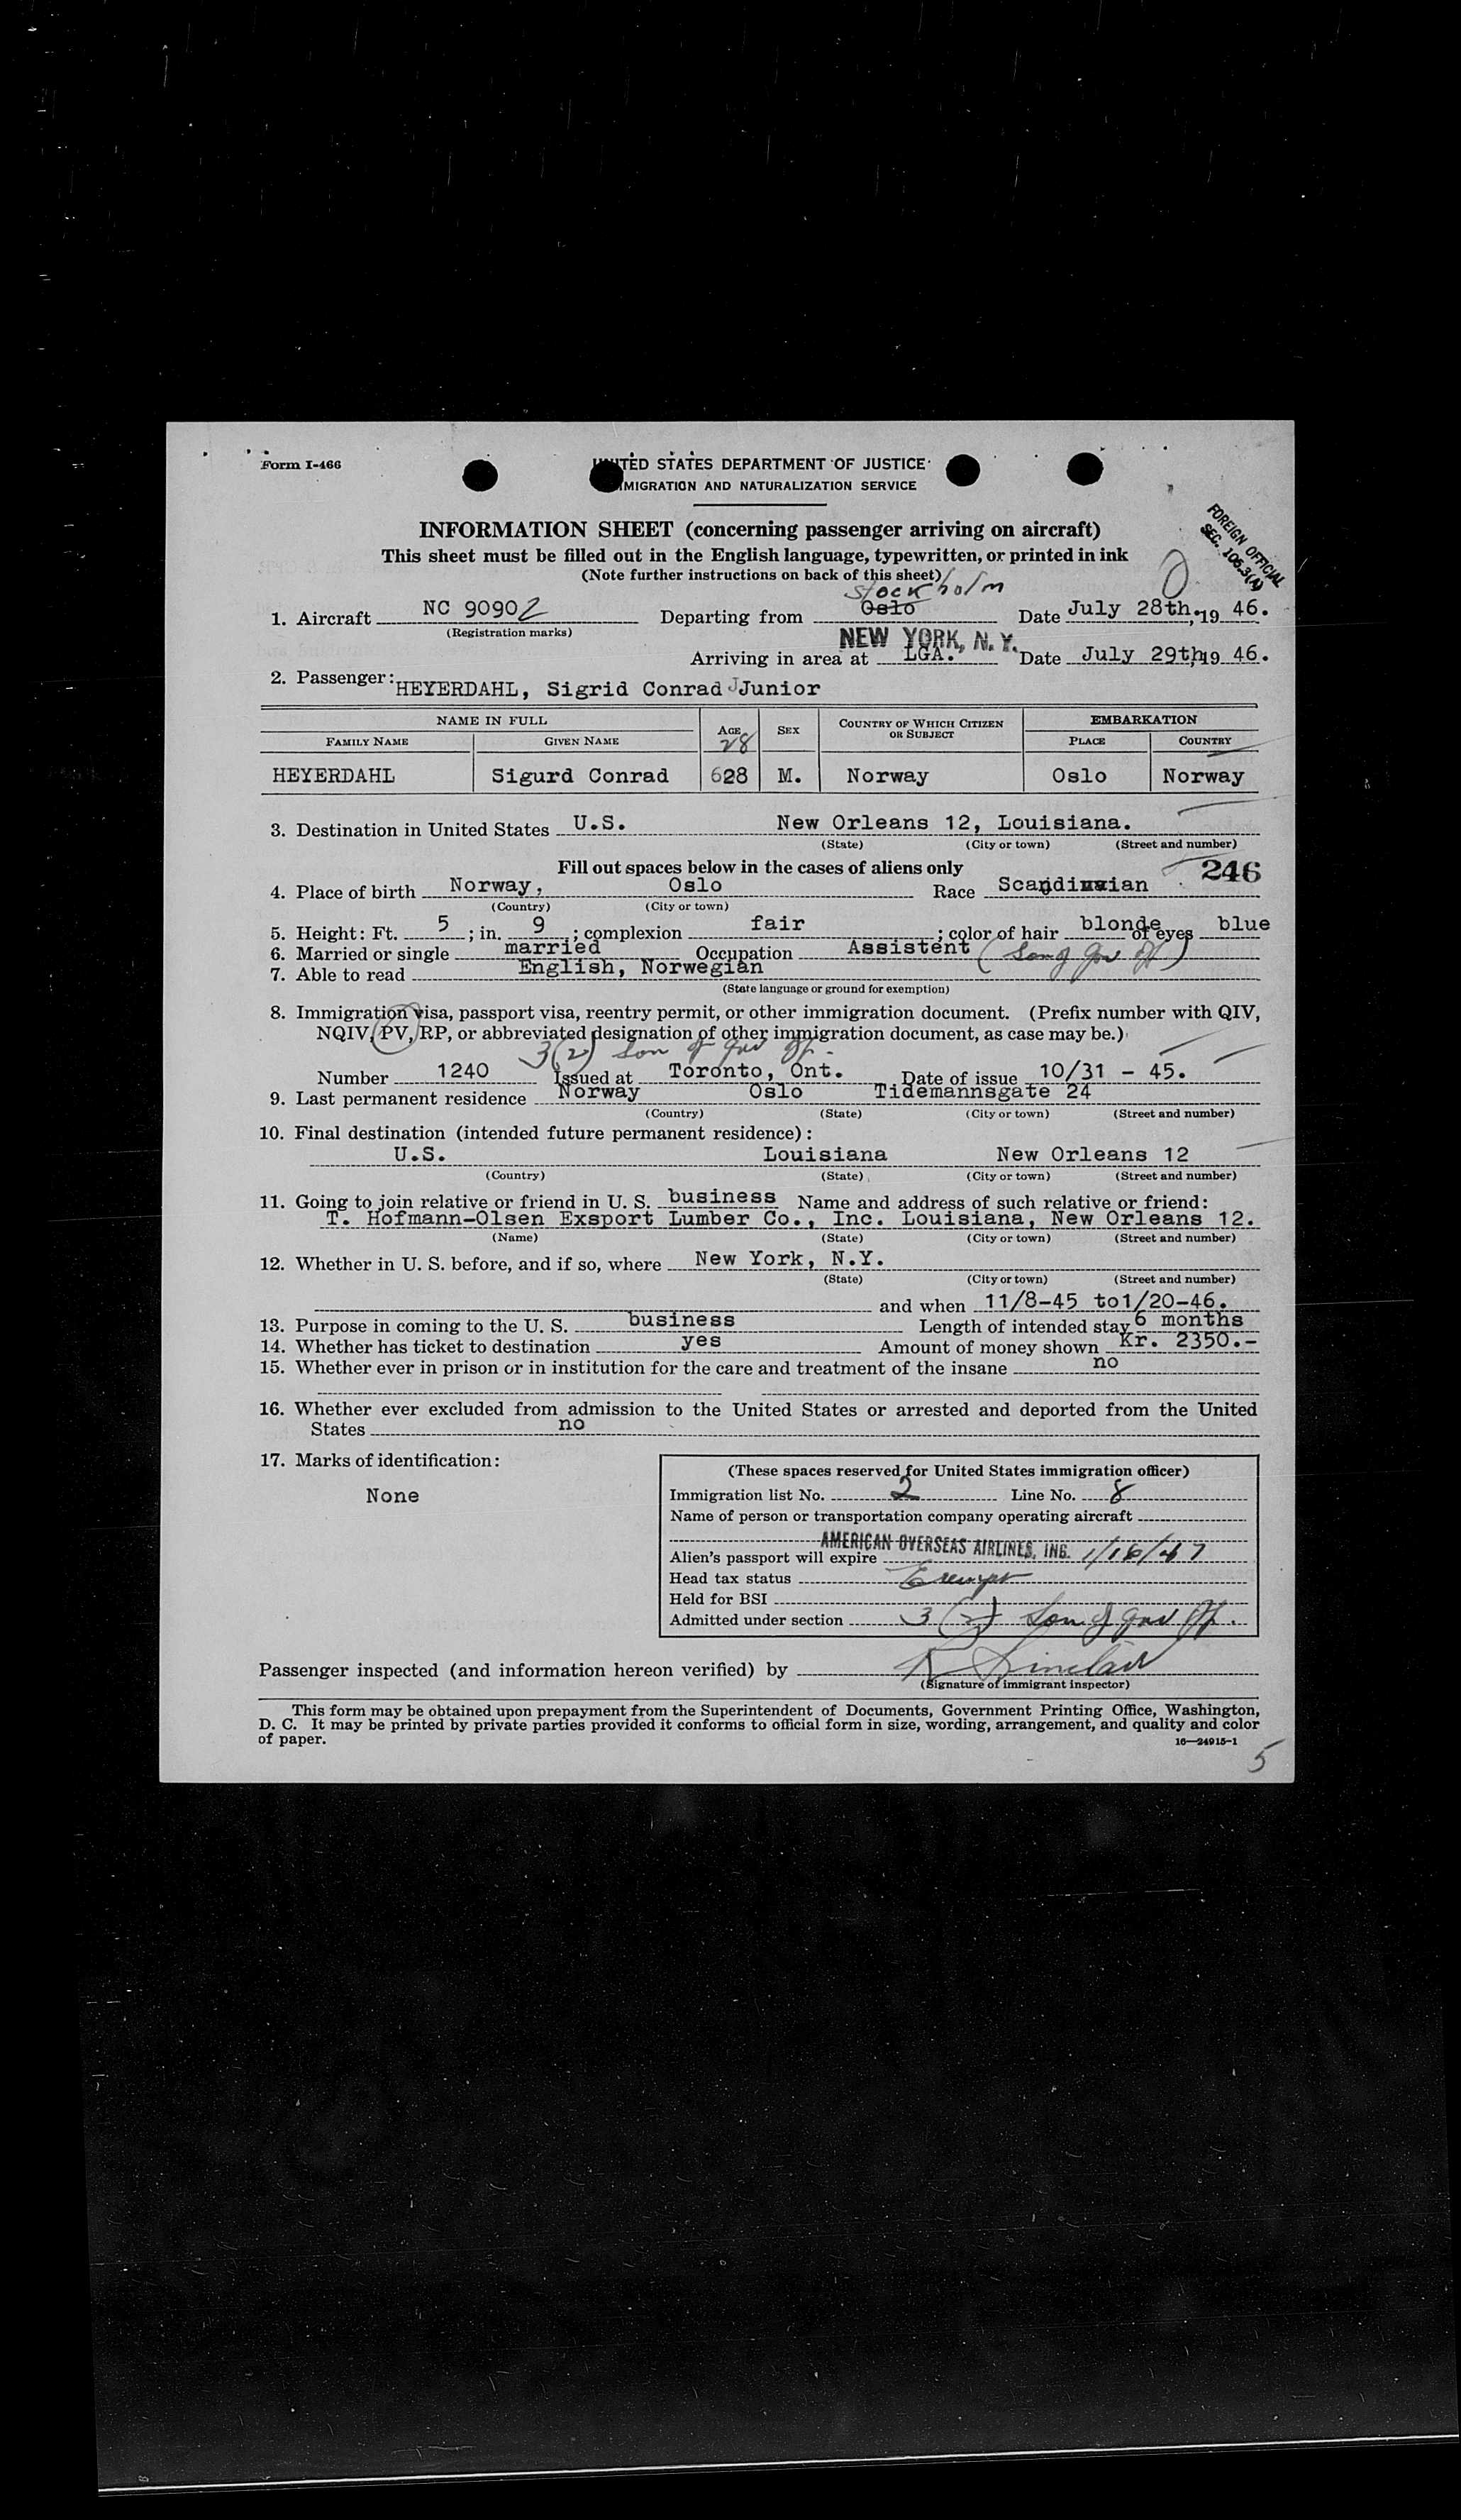 Form I-466
UNITED STATES DEPARTMENT OF JUSTICE
IMMIGRATION AND NATURALIZATION SERVICE
INFORMATION SHEET (concerning passenger arriving on aircraft)
This sheet must be filled out in the English language, typewritten, or printed in ink
(Note further instructions on back of this sheet)
FOREIGN OFFICIAL
SEC. 106.3(A)
Stockholm
1. Aircraft NC 90902 Departing from Oslo Date July 28th, 19 46.
(Registration marks)
NEW YORK, N. Y.
Arriving in area at LGA. Date July 29th 19 46.
2. Passenger: HEYERDAHL, Sigrid Conrad Junior
NAME IN FULL AGE SEX COUNTRY OF WHICH CITIZEN OR SUBJECT EMBARKATION
FAMILY NAME GIVEN NAME 28 PLACE COUNTRY
HEYERDAHL Sigurd Conrad 628 M. Norway Oslo Norway
3. Destination in United States U.S. New Orleans 12, Louisiana.
(State) (City or town) (Street and number)
Fill out spaces below in the cases of aliens only
246
4. Place of birth Norway, Oslo Race Scandinavian
(Country) (City or town)
5. Height: Ft. 5; in. 9; complexion fair; color of hair blonde of eyes blue
6. Married or single married Occupation Assistent (Son of Gov Off)
7. Able to read English, Norwegian
(State language or ground for exemption)
8. Immigration visa, passport visa, reentry permit, or other immigration document. (Prefix number with QIV,
NQIV, PV, RP, or abbreviated designation of other immigration document, as case may be.)
3(2) Son of gov off.
Number 1240 Issued at Toronto, Ont. Date of issue 10/31 - 45.
9. Last permanent residence Norway Oslo Tidemannsgate 24
(Country) (State) (City or town) (Street and number)
10. Final destination (intended future permanent residence):
U.S. Louisiana New Orleans 12
(Country) (State) (City or town) (Street and number)
11. Going to join relative or friend in U. S. business Name and address of such relative or friend:
T. Hofmann-Olsen Exsport Lumber Co., Inc. Louisiana, New Orleans 12.
(Name) (State) (City or town) (Street and number)
12. Whether in U. S. before, and if so, where New York, N.Y.
(State) (City or town) (Street and number)
and when 11/8-45 to1/20-46.
13. Purpose in coming to the U. S. business Length of intended stay 6 months
14. Whether has ticket to destination yes Amount of money shown Kr. 2350.-
15. Whether ever in prison or in institution for the care and treatment of the insane no
16. Whether ever excluded from admission to the United States or arrested and deported from the United
States no
17. Marks of identification:
None
(These spaces reserved for United States immigration officer)
Immigration list No. 2 Line No. 8
Name of person or transportation company operating aircraft
AMERICAN OVERSEAS AIRLINES, INC.
Alien's passport will expire 1/16/47
Head tax status Exempt
Held for BSI
Admitted under section 3(2) Son of gov Off.
Passenger inspected (and information hereon verified) by Sinclair
(Signature of immigrant inspector)
This form may be obtained upon prepayment from the Superintendent of Documents, Government Printing Office, Washington,
D. C. It may be printed by private parties provided it conforms to official form in size, wording, arrangement, and quality and color
of paper.
16—24915-1
5